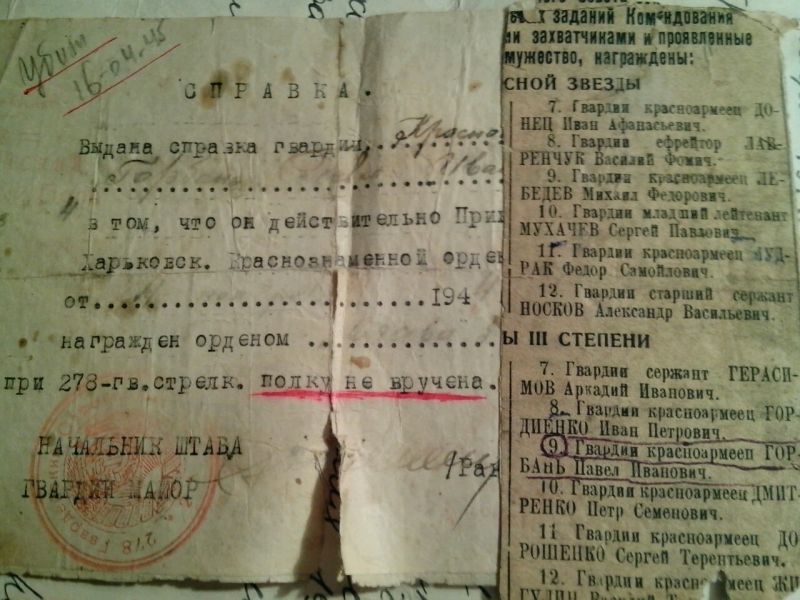 Убит
16-04-45
СПРАВКА.
Выдана справка гвардии Красно
Горбань Ива
в том, что он действительно При
Харьковск. Краснознаменной орден
от 194
награжден орденом
при 278-гв.стрелк. полку не вручена.
НАЧАЛЬНИК ШТАБА
ГВАРДИИ МАЙОР
278 Гвард
заданий Командования
ми захватчинами и проявленные
мужество, награждены:
СНОЙ ЗВЕЗДЫ
7. Гвардии красноармеец ДО-
НЕЦ Иван Афанасьевич.
8. Гвардии ефрейтор ЛАВ-
РЕНЧУК Василий Фомич.
9. Гвардии красноармеец ЛЕ-
БЕДЕВ Михаил Федорович.
10. Гвардии младший лейтенант
МУХАЧЕВ Сергей Павлович.
11. Гвардии красноармеец МУД-
РАК Федор Самойлович.
12. Гвардии старший сержант
НОСКОВ Александр Васильевич.
Ы III СТЕПЕНИ
7. Гвардии сержант ГЕРАСИ-
МОВ Аркадий Иванович.
8. Гвардии красноармеец ГОР-
ДИЕНКО Иван Петрович.
9 Гвардии красноармееп ГОР-
БАНЬ Павел Иванович.
10. Гвардии красноармеец ДМИТ-
РЕНКО Петр Семенович.
11 Гвардии красноармеец ДО
РОШЕНКО Сергей Терентьевич.
12. Гвардии красноармеец ЖИ